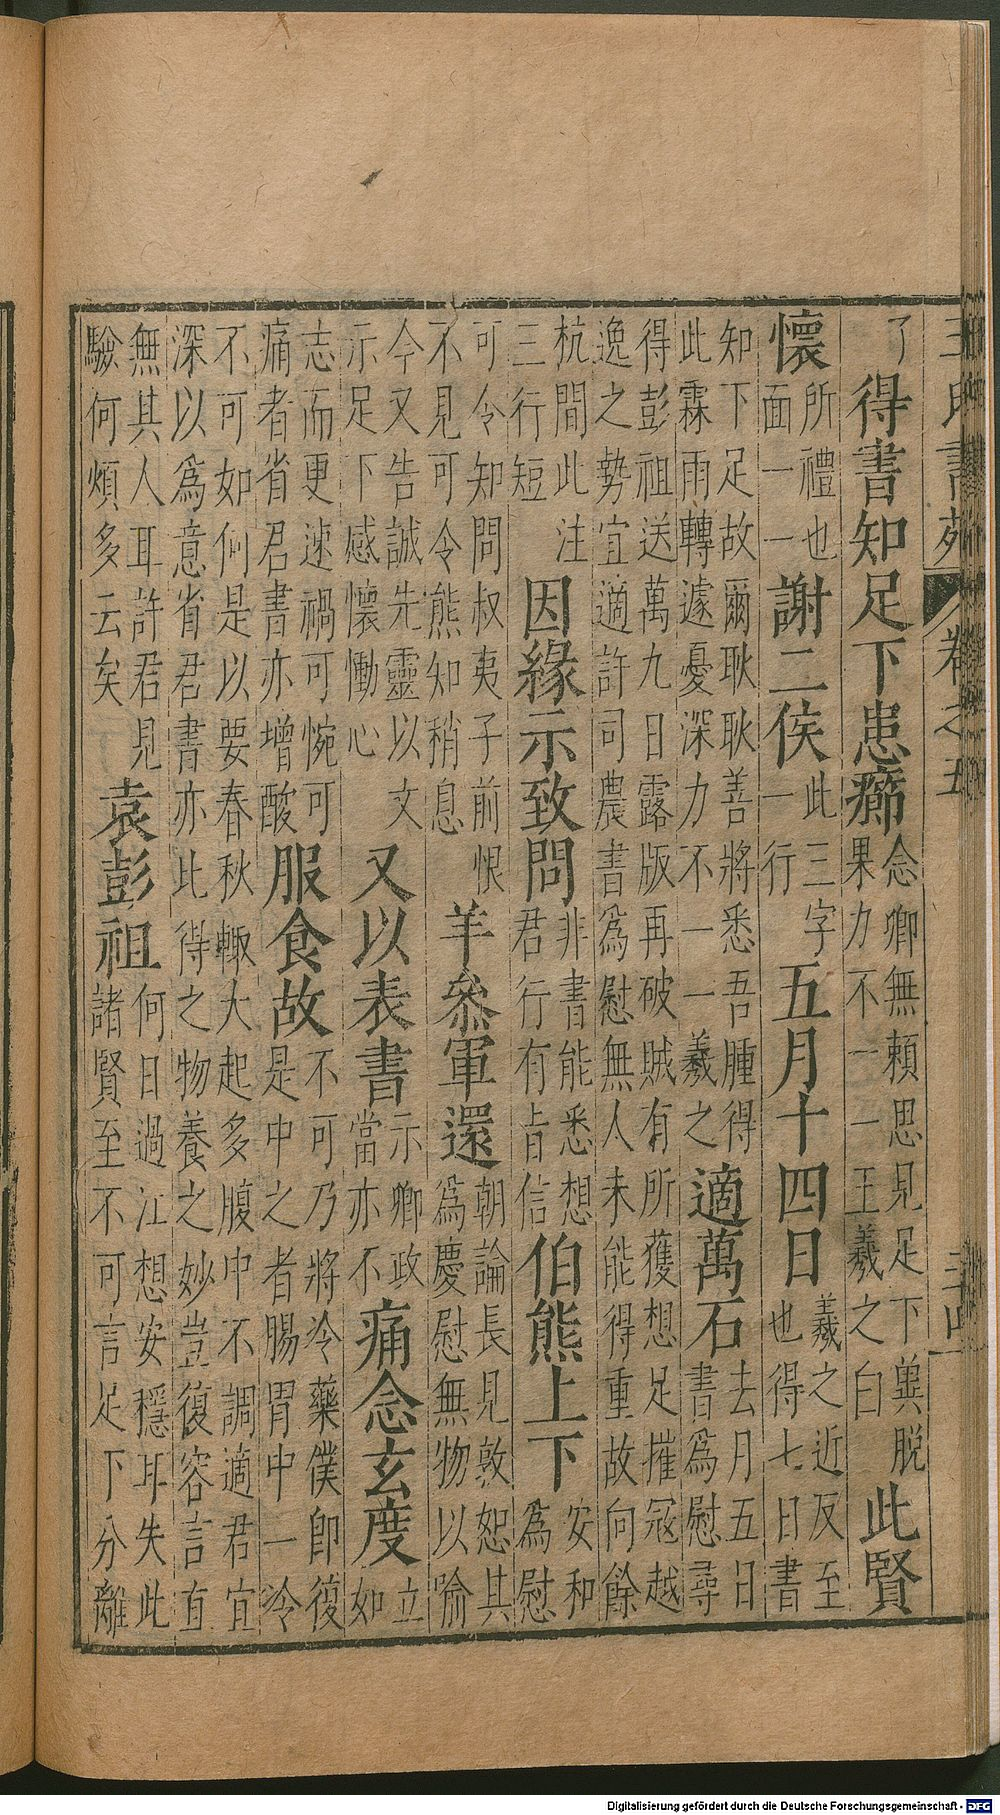 王氏書苑 卷之五
了
得書知足下患癤
念卿無賴思見足下冀脫
果力不一一王羲之白
此賢
懷
所禮也
面一一
謝二侯
此三字
一行
五月十四日
羲之近反至
也得七日書
知下足故爾耿耿善將悉吾腫得
此霖雨轉遽憂深力不一一羲之
適萬石
去月五日
書爲慰尋
得彭祖送萬九日露版再破賊有所獲想足摧冦越
逸之勢宜適許司農書爲慰無人未能得重故向餘
杭間此注
三行短
因緣示致問
非書能悉想
君行有旨信
伯熊上下
安和
爲慰
可令知問叔夷子前恨
不見可令熊知稍息
羊參軍還
朝論長見敦恕其
爲慶慰無物以喻
今又告誠先靈以文
示足下感懷慟心
又以表書
示卿政
當亦不
痛念玄度
立
如
志而更速禍可惋可
痛者省君書亦增酸
服食故
不可乃將冷藥僕卽復
是中之者腸胃中一冷
不可如何是以要春秋輙大起多腹中不調適君宜
深以爲意省君書亦此得之物養之妙豈復容言直
無其人耳許君見
驗何煩多云矣
袁彭祖
何日過江想安穩耳失此
諸賢至不可言足下分離
Digitalisierung gefördert durch die Deutsche Forschungsgemeinschaft - DFG